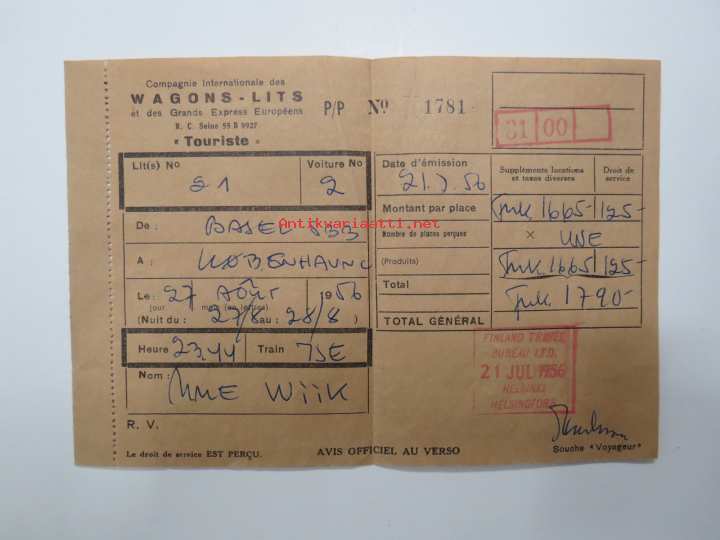 Compagnie Internationale des
WAGONS-LITS
et des Grands Express Européens
R. C. Seine 55 B 9927
« Touriste »
P/P No 1781
31 00
Lit(s) No Voiture No
21 2
De: BASEL SBB
A: KØBENHAVN
Le: 27 AOÛT 1956
jour
(Nuit du: 27/8 au: 28/8)
Heure 23.44 Train
Nom: Mme Wiik
R. V.
Le droit de service EST PERÇU.
Date d'émission
21.7.56
Suppléments locations et taxes diverses
Droit de service
Montant par place Fmk 1665- 125-
Nombre de places perçues × UNE
(Produits) Fmk 1665/125-
Total Fmk 1790-
TOTAL GÉNÉRAL
FINLAND TRAVEL
BUREAU LTD.
21 JUL 1956
HELSINKI
HELSINGFORS
AVIS OFFICIEL AU VERSO
Souche "Voyageur"
Antikvariaatti.net